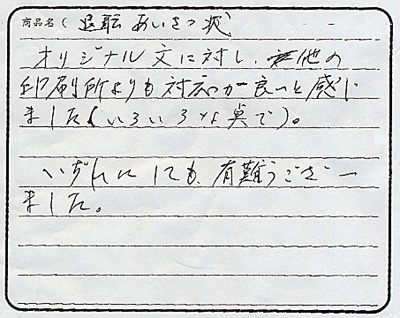 商品名( 退職あいさつ状
オリジナル文に対し、他の
印刷所よりも対応が良いと感じ
ました(いろいろな点で)。
いずれにしても、有難うござい
ました。